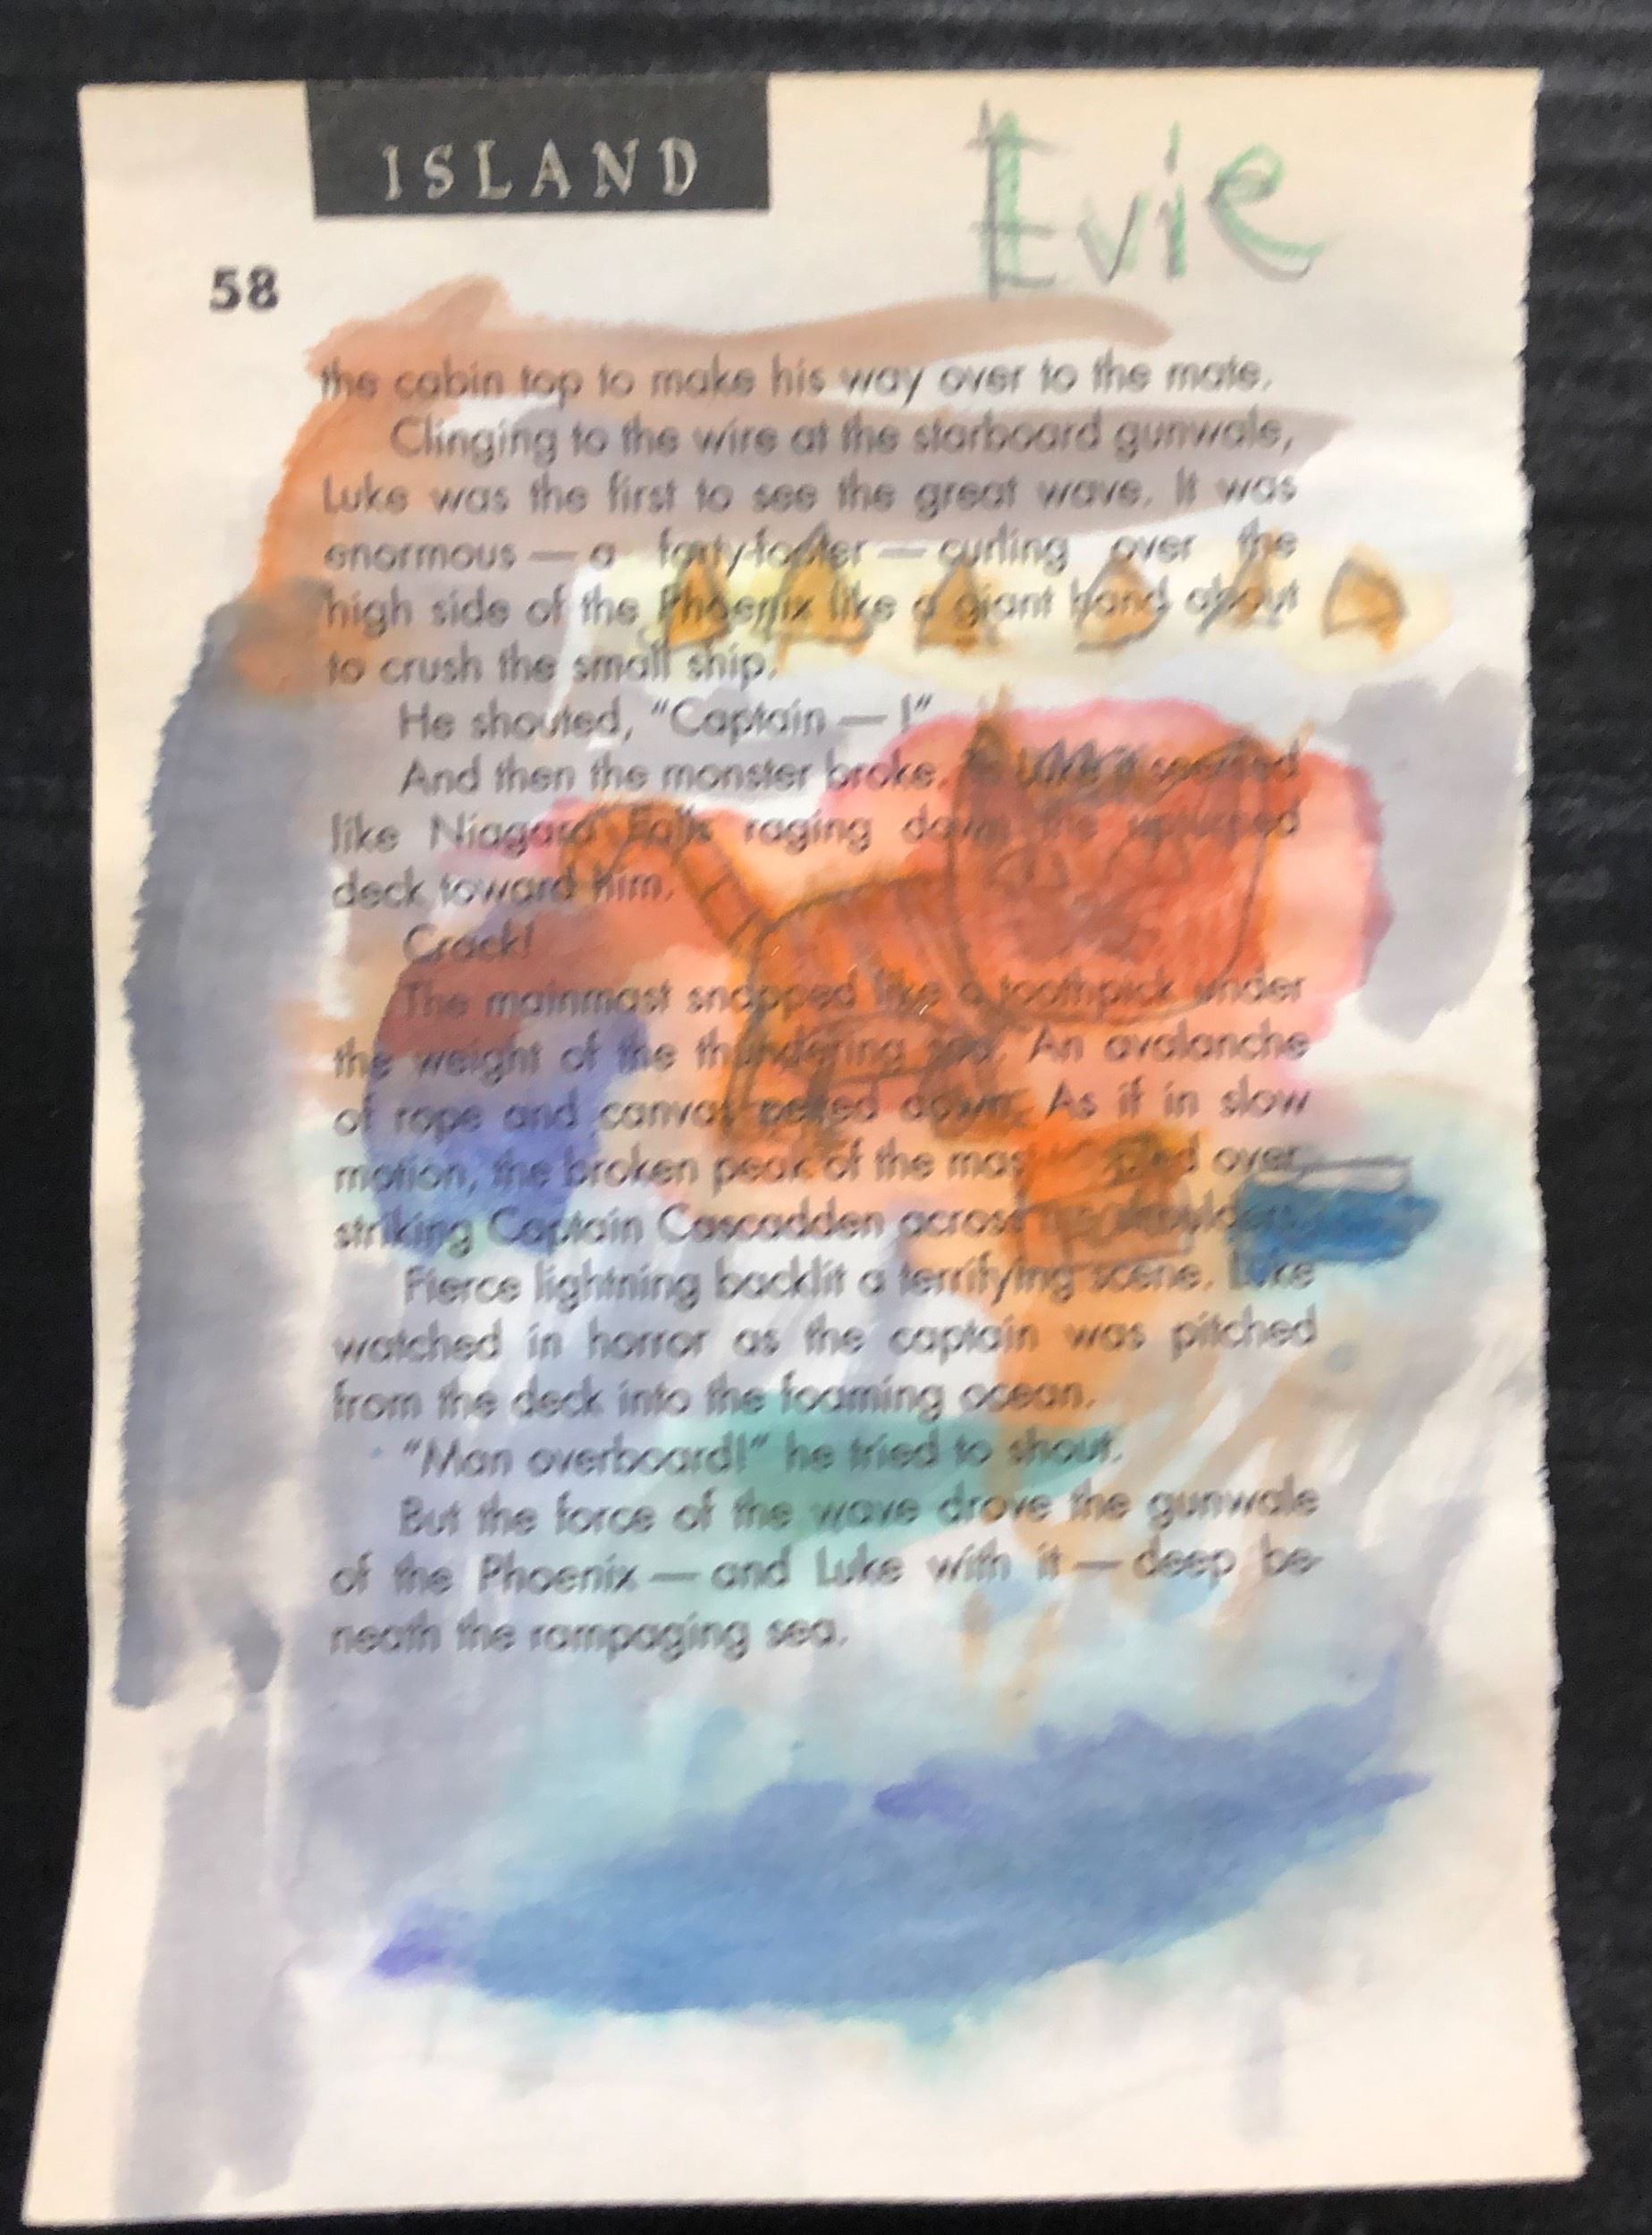 ISLAND
Evie
58
the cabin top to make his way over to the mate.
Clinging to the wire at the starboard gunwale,
Luke was the first to see the great wave. It was
enormous — a forty-footer — curling over the
high side of the Phoenix like a giant hand about
to crush the small ship.
He shouted, “Captain — !”
And then the monster broke. To Luke it seemed
like Niagara Falls raging down the upturned
deck toward him.
Crack!
The mainmast snapped like a toothpick under
the weight of the thundering sea. An avalanche
of rope and canvas pelted down. As if in slow
motion, the broken peak of the mast over,
striking Captain Cascadden across shoulders.
Fierce lightning backlit a terrifying scene. Luke
watched in horror as the captain was pitched
from the deck into the foaming ocean.
“Man overboard!” he tried to shout.
But the force of the wave drove the gunwale
of the Phoenix — and Luke with it — deep be-
neath the rampaging sea.